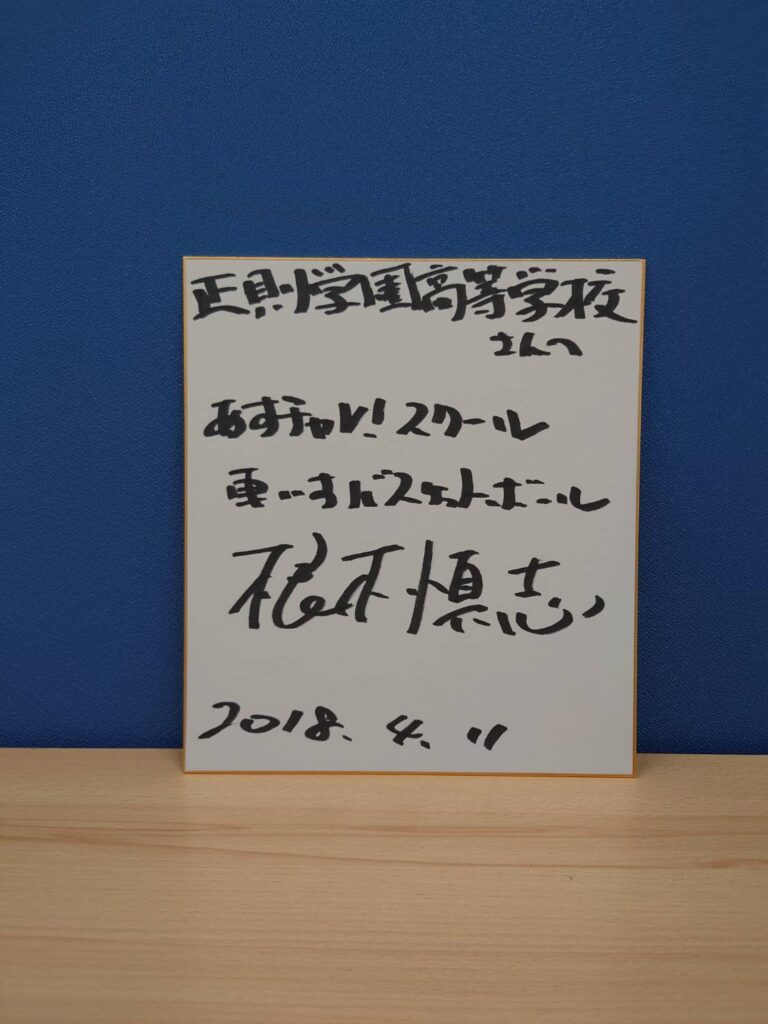 正則学園高等学校
さんへ
あすチャレ！スクール
車いすバスケットボール
根木慎志
2018.4.11